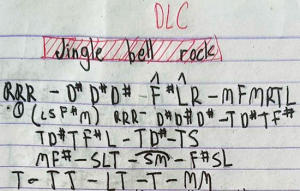 DLC
Jingle bell rock
RRR - D# D# D# - F̂ #L̂R - MFMRTL
(LSF#M) RRR- D#D#D# -TD#TF#
TD#TF#L - TD#-TS
MF# - SLT - SM - F#SL
T - TT - LT - T - MM